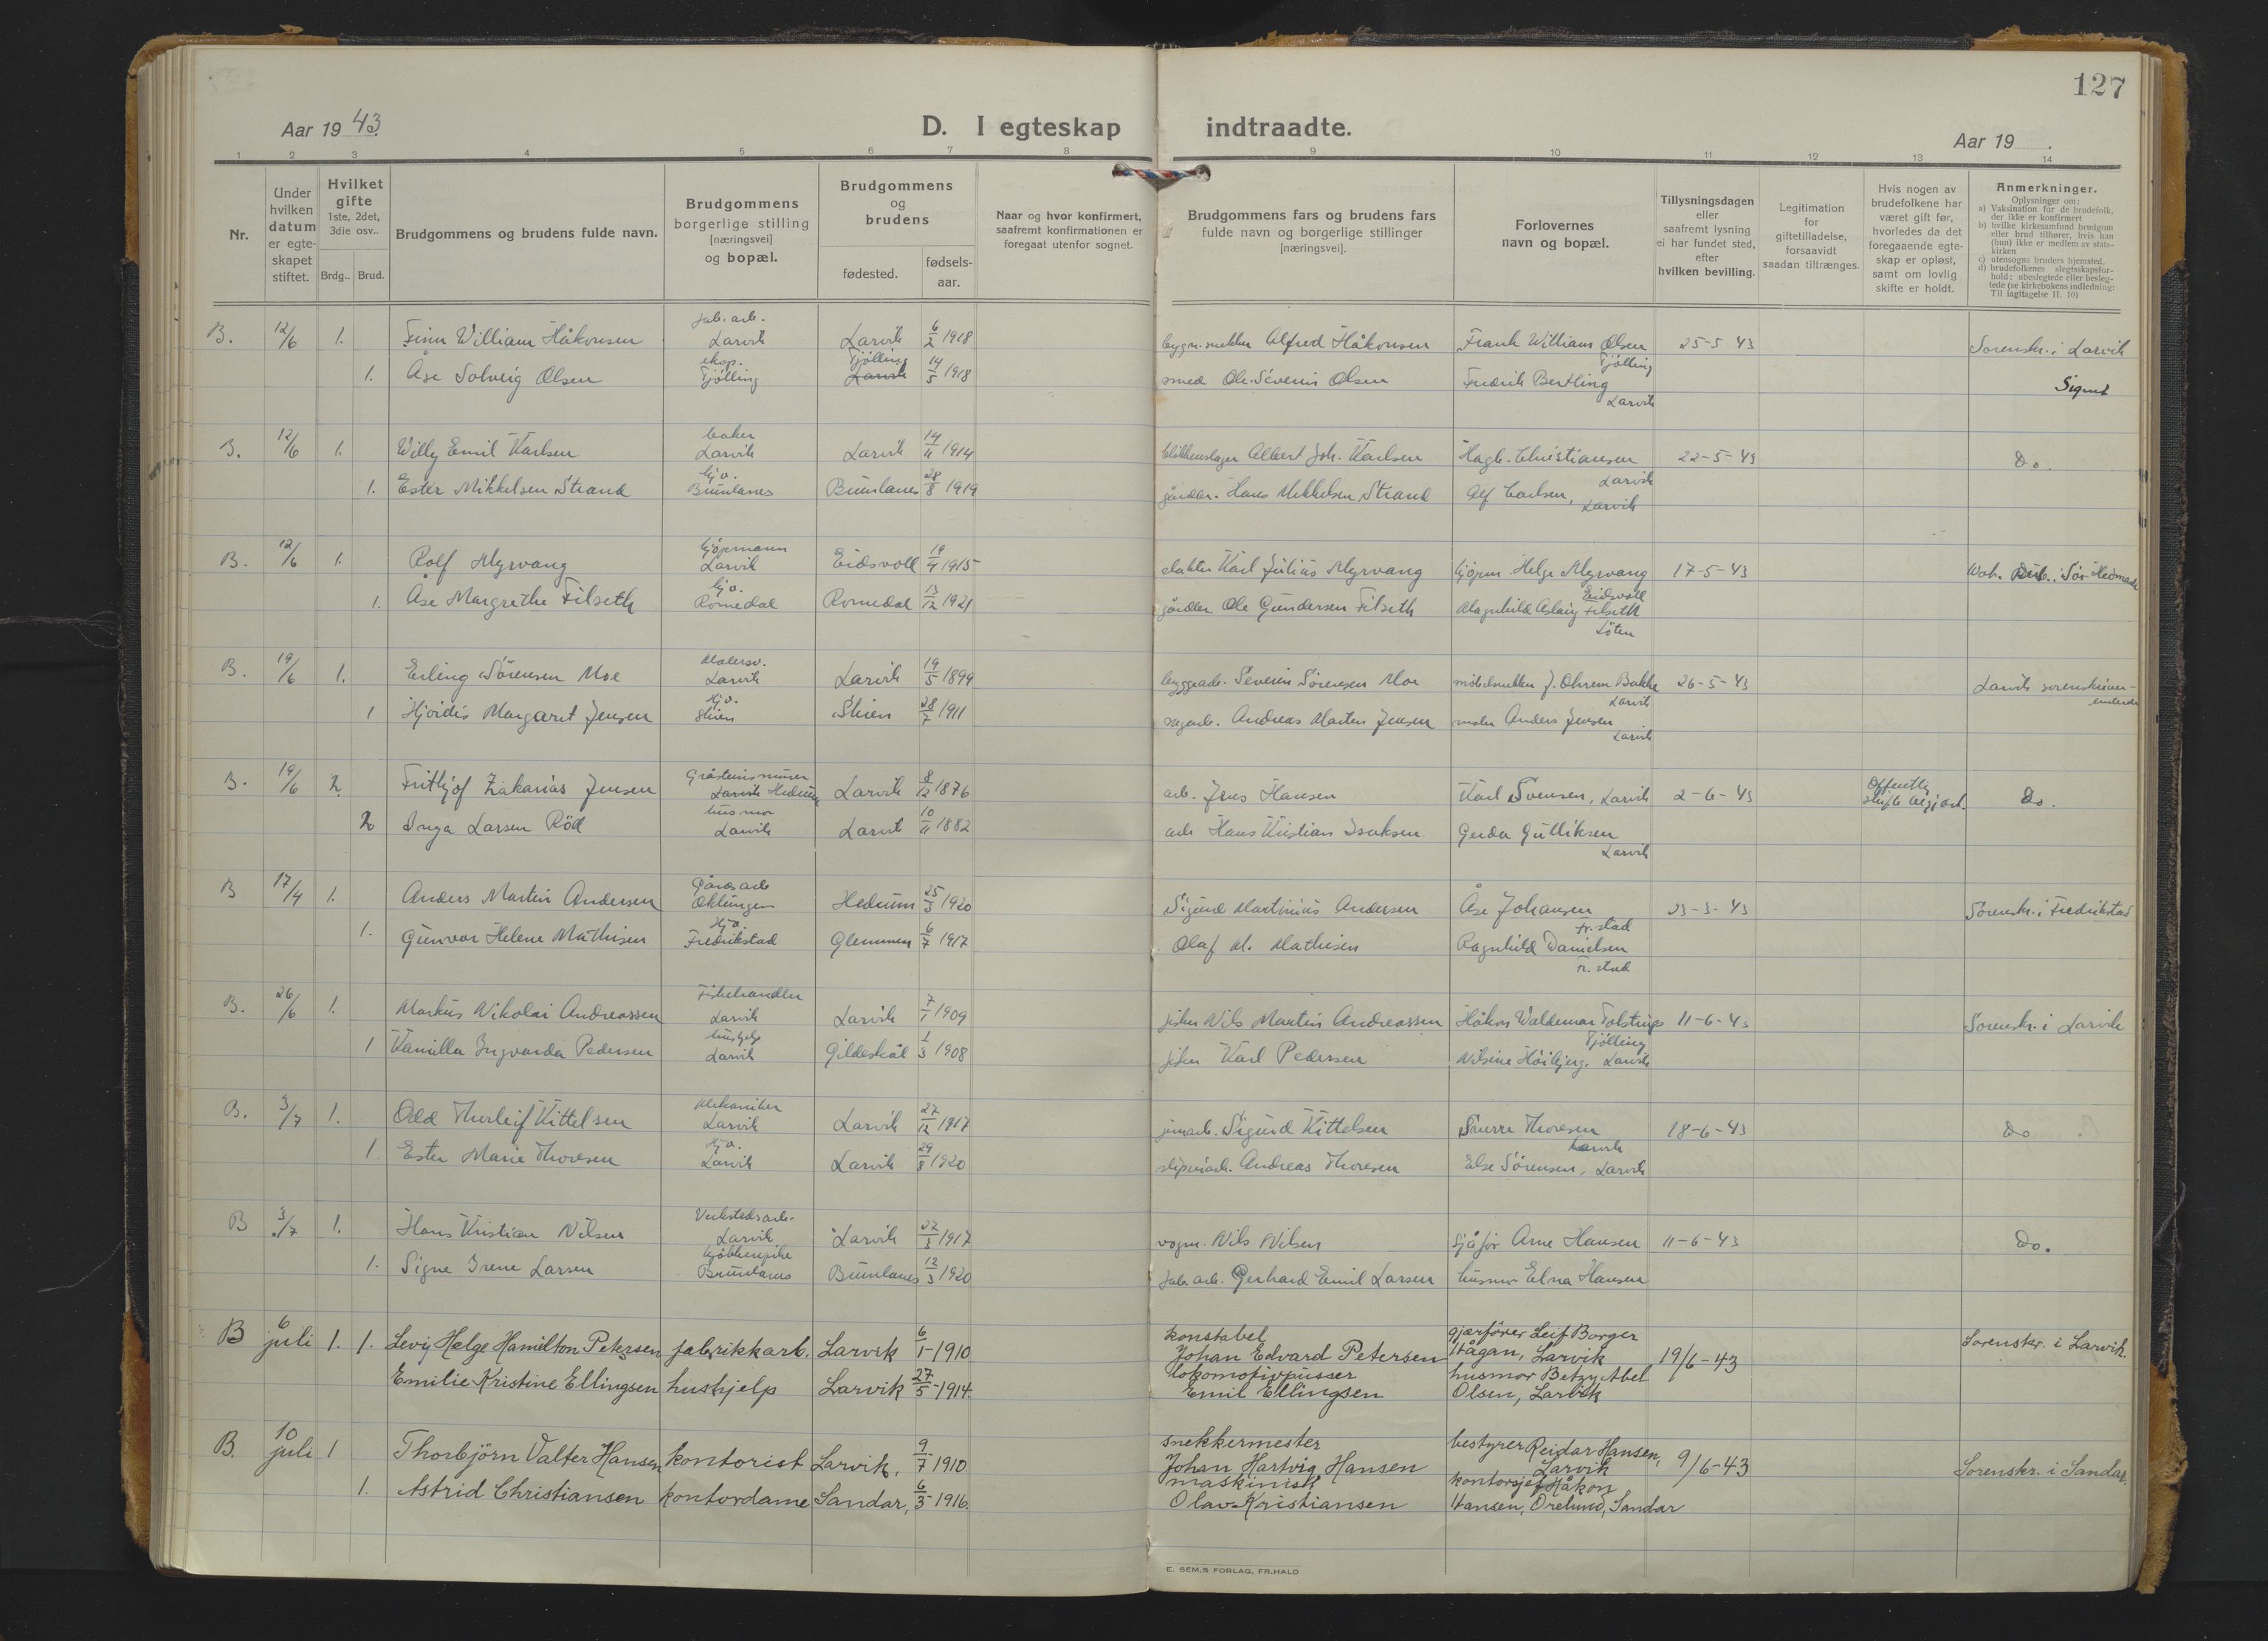 127
Aar 1943.
D. I egteskap indtraadte.
Aar 19 .
1 2 3 4 5 6 7 8 9 10 11 12 13 14
Nr.
Under hvilken datum er egteskapet stiftet.
Hvilket gifte 1ste, 2det, 3die osv..
Brdg.. Brud.
Brudgommens og brudens fulde navn.
Brudgommens borgerlige stilling [næringsvei] og bopæl.
Brudgommens og brudens
fødested.
fødsels-aar.
Naar og hvor konfirmert, saafremt konfirmationen er foregaat utenfor sognet.
Brudgommens fars og brudens fars fulde navn og borgerlige stillinger [næringsvei].
Forlovernes navn og bopæl.
Tillysningsdagen eller saafremt lysning ei har fundet sted, efter hvilken bevilling.
Legitimation for giftetilladelse, forsaavidt saadan tiltrænges.
Hvis nogen av brudefolkene har været gift før, hvorledes da det foregaaende egteskap er opløst, samt om lovlig skifte er holdt.
Anmerkninger.
Oplysninger om:
a) Vaksination for de brudefolk, der ikke er konfirmert
b) hvilke kirkesamfund brudgom eller brud tilhører, hvis han (hun) ikke er medlem av statskirken
c) utensogns bruders hjemsted.
d) brudefolkenes slegtsskapsforhold: ubeslegtede eller beslegtede (se kirkebokens indledning: Til iagttagelse II. 10)
B. 12/6 1. Finn William Håkonsen fab. arb. Larvik Larvik 6/2 1918 bygn.snekker Alfred Håkonsen Frank William Olsen Tjölling 25-5 43 Sorenskr. i Larvik
1. Åse Solveig Olsen eksp. Tjölling Tjölling Larvik 14/5 1918 smed Ole Severin Olsen Fredrik Bertling Larvik
B. 12/6 1. Willy Emil Karlsen baker Larvik Larvik 14/11 1914 blikkenslager Albert Joh. Karlsen Hagb. Christiansen Larvik 22-5-43 Do.
1. Ester Mikkelsen Strand hj.v. Brunlanes Brunlanes 28/8 1919 gårdbr. Hans Mikkelsen Strand Alf Carlsen, Larvik
B. 12/6 1. Rolf Myrvang kjöpmann Larvik Eidsvoll 19/4 1915 slakter Karl Julius Myrvang kjöpm. Helge Myrvang Eidsvoll 17-5-43 Sör-Hedmark
1. Åse Margrethe Filseth hj.v. Romedal Romedal 13/12 1921 gårdbr. Ole Gundersen Filseth Magnhild Aslaug Filseth Löten
B. 19/6 1. Erling Sörensen Moe Malersv. Larvik Larvik 19/5 1899 byggearb. Severin Sörensen Moe möbelsnekker J. Ohrem Bakke Larvik 26-5-43 Larvik sorenskriver-embede
1 Hjördis Margaret Jensen Hj.v. Skien Skien 28/7 1911 sagarb. Andreas Martin Jensen maler Anders Jensen Larvik
B. 19/6 2. Fritjof Zakarias Jensen Gråsteinsminer Larvik Hedrum Larvik 8/12 1876 arb. Jens Hansen Karl Svensen, Larvik 2-6-43 Offentlig skifte begj. Do.
2 Inga Larsen Röd husmor Larvik Larvik 10/11 1882 arb Hans Kristian Isaksen Gerda Gulliksen Larvik
B 17/4 1. Anders Martin Andersen Gårdsarb Oklungen Hedrum 25/3 1920 Sigurd Martinius Andersen Åse Johansen Fr.stad 23-3-43 Sorenskr. i Fredrikstad
1. Gunvor Helene Mathisen Hj.v. Fredrikstad Glemmen 6/7 1917 Olaf M. Mathisen Ragnhild Danielsen Fr.stad
B. 26/6 1. Markus Nikolai Andreassen Fiskehandler Larvik Larvik 7/1 1909 fisker Nils Martin Andreassen Håkon Waldemar Tolstrup Tjölling 11-6-43 Sorenskr. i Larvik
1 Kamilla Ingvarda Pedersen hushjelp Larvik Gildeskål 1/3 1908 fisker Karl Pedersen Nilsine Höibjerg. Larvik
B. 3/7 1. Odd Thorleif Kittelsen Mekaniker Larvik Larvik 27/12 1917 jernarb. Sigurd Kittelsen Sverre Thoresen Larvik 18-6-43 Do
1. Ester Marie Thoresen Hj.v. Larvik Larvik 29/8 1920 sliperiarb. Andreas Thoresen Else Sörensen, Larvik
B 3/7 1. Hans Kristian Nilsen Verkstedsarb. Larvik Larvik 27/3 1917 vognm. Nils Nilsen Sjåför Arne Hansen 11-6-43 Do.
1. Signe Irene Larsen kjökkenpike Brunlanes Brunlanes 12/3 1920 fab arb. Gerhard Emil Larsen husmor Elna Hansen
B 6 juli 1. 1. Levy Helge Hamilton Petersen fabrikkarb. Larvik 6/1-1910 konstabel Johan Edvard Petersen gjærförer Leif Borger Hågan, Larvik 19/6-43 Sorenskr. i Larvik.
Emilie Kristine Ellingsen hushjelp Larvik 27/5-1914. lokomotivpusser Emil Ellingsen husmor Betzy Abel Olsen, Larvik
B. 10 juli 1 Thorbjörn Valter Hansen kontorist Larvik, 9/7 1910. snekkermester Johan Hartvig Hansen bestyrer Reidar Hansen, Larvik 9/6-43 Sorenskr. i Sandar.
1. Astrid Christiansen kontordame Sandar, 6/3-1916. maskinist Olav Kristiansen kontorsjef Håkon Hansen, Orelund, Sandar
E. SEM.S FORLAG, FR.HALD